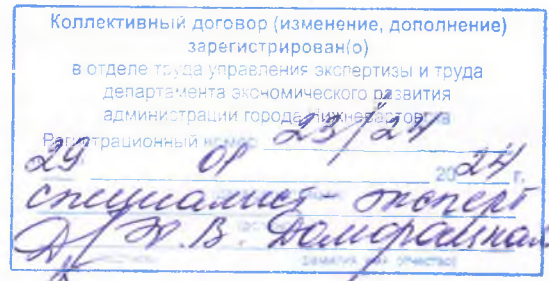 Коллективный договор (изменение, дополнение)
зарегистрирован(о)
в отделе труда управления экспертизы и труда
департамента экономического развития
администрации города Нижневартовска
Регистрационный номер 23/24
29 01 2024 г.
специалист-эксперт
Н.В.